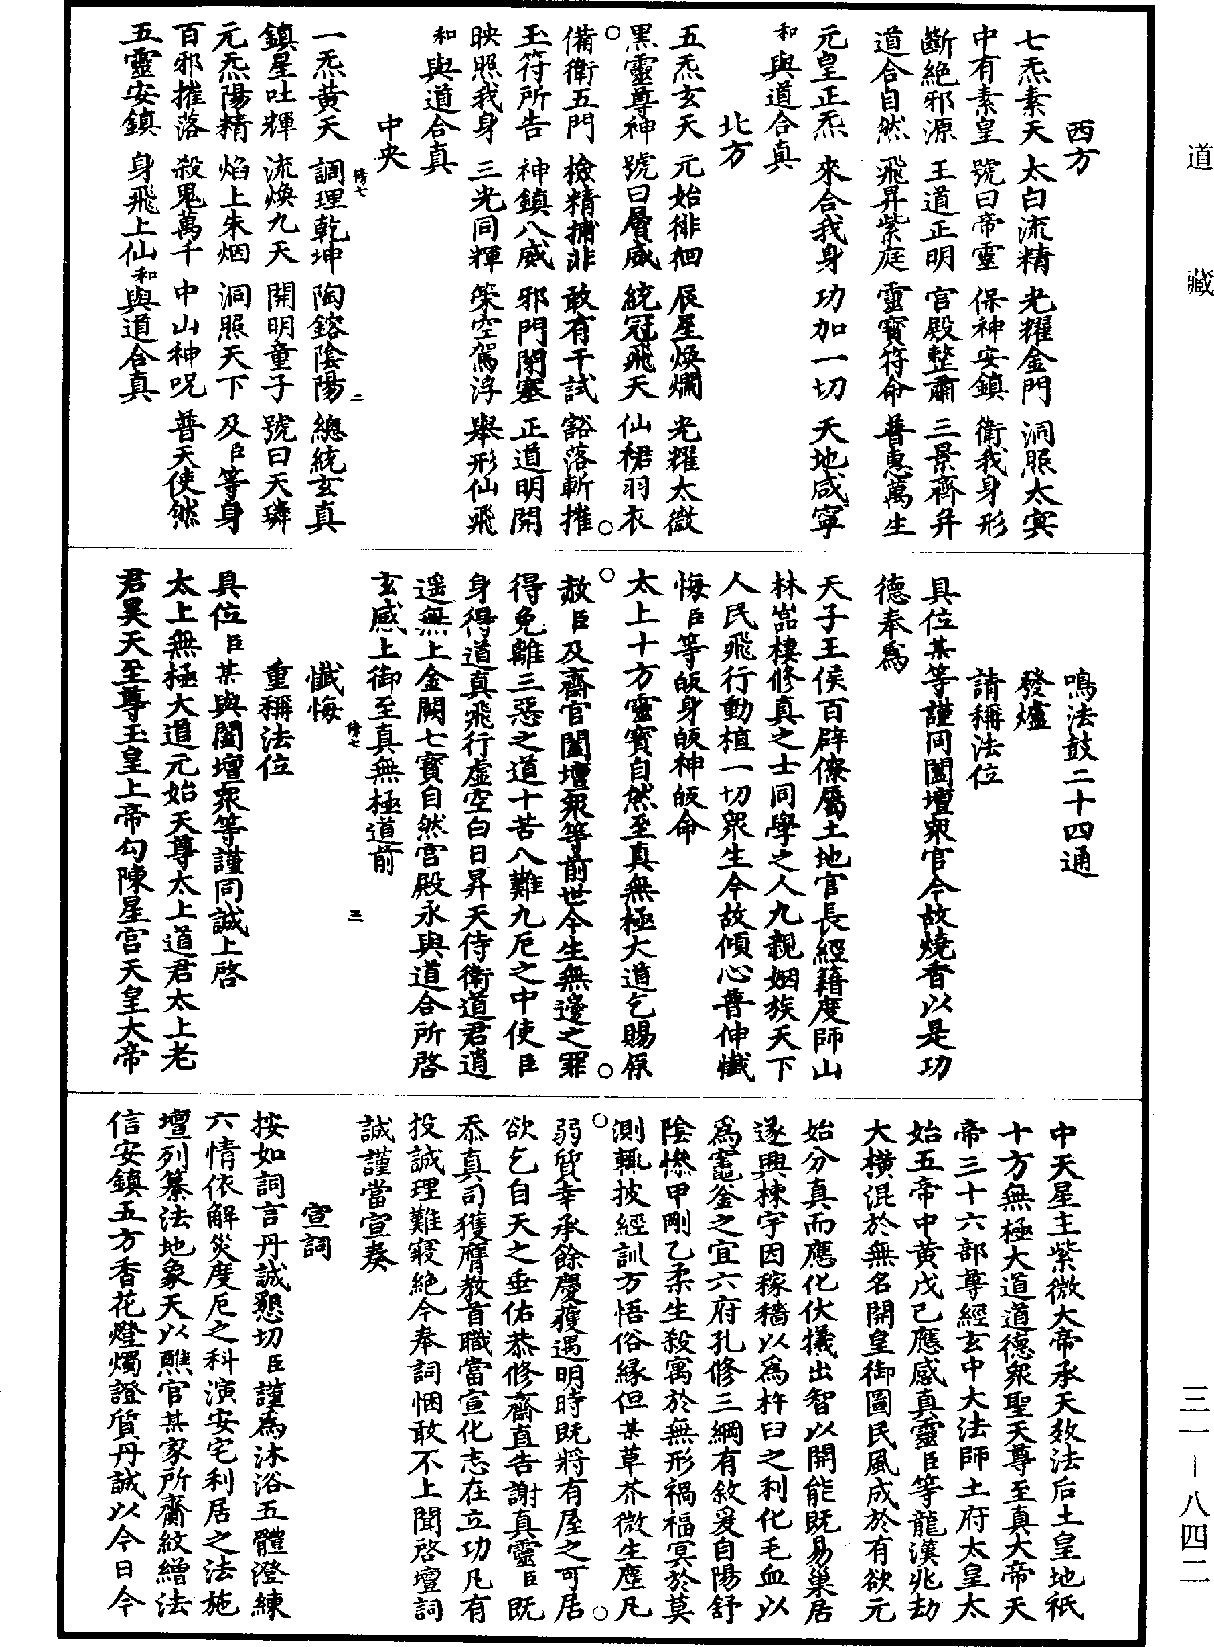 道藏
西方
七炁素天　太白流精　光耀金門　洞照太冥
中有素皇　號曰帝靈　保神安鎮　衛我身形
斷絕邪源　王道正明　官殿整肅　三景齊并
道合自然　飛昇紫庭　靈寶符命　普惠萬生
元皇正炁　來合我身　功加一切　天地咸寧
和與道合真
北方
五炁玄天　元始徘徊　辰星煥爛　光耀太微
黑靈尊神　號曰層威　統冠飛天　仙裙羽衣
備衛五門　檢精捕非　敢有干試　豁落斬摧
玉符所告　神鎮八威　邪門閉塞　正道明開
映照我身　三光同輝　策空駕浮　舉形仙飛
和與道合真
中央
一炁黃天　調理乾坤　陶鎔陰陽　總統玄真
鎮星吐輝　流煥九天　開明童子　號曰天璘
元炁陽精　焰上朱烟　洞照天下　及臣等身
百邪摧落　殺鬼萬千　中山神呪　普天使然
五靈安鎮　身飛上仙　和與道合真
鳴法鼓二十四通
發爐
請稱法位
具位某等謹同闔壇眾官今故燒香以是功
德奉為
天子王侯百辟僚屬土地官長經籍度師山
林嵓棲修真之士同學之人九親姻族天下
人民飛行動植一切眾生今故傾心普伸懺
悔臣等皈身皈神皈命
太上十方靈寶自然至真無極大道乞賜原
赦臣及齋官闔壇眾等前世今生無邊之罪
得免離三惡之道十苦八難九厄之中使臣
身得道真飛行虛空白日昇天侍衛道君逍
遥無上金闕七寶自然宫殿永與道合所啓
玄感上御至真無極道前
懺悔
重稱法位
具位臣某與闔壇眾等謹同誠上啓
太上無極大道元始天尊太上道君太上老
君昊天至尊玉皇上帝勾陳星宫天皇大帝
中天星主紫微大帝承天效法后土皇地祇
十方無極大道道德眾聖天尊至真大帝天
帝三十六部尊經玄中大法師土府太皇太
始五帝中黃戊己應感真靈臣等龍漢兆劫
大橫混於無名開皇御圖民風成於有欲元
始分真而應化伏犧出智以開能既易巢居
遂興棟宇因稼穡以為杵臼之利化毛血以
為竈釜之宜六府孔修三綱有敘爰自陽舒
陰慘甲剛乙柔生殺寓於無形禍福冥於莫
測輒披經訓方悟俗緣但某草芥微生塵凡
弱質幸承餘慶獲遇明時既將有屋之可居
欲乞自天之垂佑恭修齋直告謝真靈臣既
忝真司獲膺教首職當宣化志在立功凡有
投誠理難寢絕今奉詞悃敢不上聞啓壇詞
誠謹當宣奏
宣詞
按如詞言丹誠懇切臣謹為沐浴五體澄練
六情依解災度厄之科演安宅利居之法施
壇列纂法地象天以醮官某家所齎紋繒法
信安鎮五方香花燈燭證質丹誠以今日今
修七　二
修七　三
三一－八四二